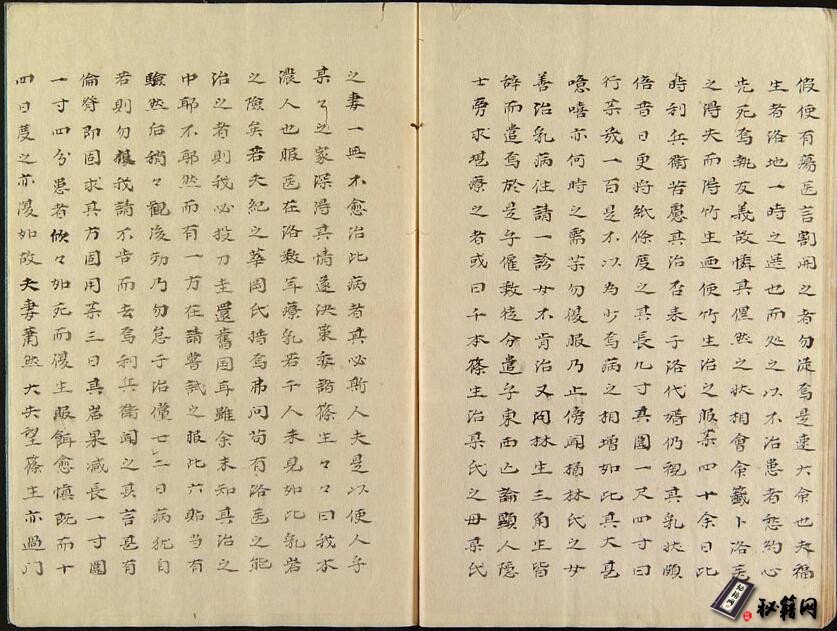 假使有瘍医言割開之者勿従焉是速大命也夫福
生者洛地一時之選也而処之以不治患者愁約心
先死焉執友義故憐其惺然之状相會命籤卜洛医
之得失而得竹生西使竹生治之服薬四十余日比
時利兵衛苦慮其治否来于洛代婿仍視其乳状頗
倍昔日更将紙條度之其長九寸其圍一尺四寸曰
行薬幾一百是不以為少焉病之相增如此其大甚
噫嘻亦何時之需薬勿復服乃止傍聞橘林氏之女
善治乳病往請一診女不肯治又陶林生三角生皆
辞而遣焉於是乎僱数徒分遣乎東西亡論顕人隱
士旁求堪療之者或曰千本篠生治某氏之母某氏
之妻一無不愈治此病者其必斯人夫是以使人于
某々之家深得其情遂決策委諸篠生々々曰我本
濃人也服医在洛数年療乳若千人未見如比乳岩
之險矣若夫紀之華岡氏措焉弗問苟有洛医之能
治之者則我必投刀圭還舊国耳雖余未知其治之
中耶不耶然而有一方在請嘗試之服此六貼当有
驗然后稍々觀後効乃勿怠于治僅七二日病犹自
若則勿複我請不告而去焉利兵衛聞之其言甚有
倫脊即固求其方固用薬三日其岩果減長一寸圍
一寸四分患者倏々如死而復生服餌愈慎既而十
四日度之亦復如故夫妻蕭然大失望篠生亦過门
秘籍网